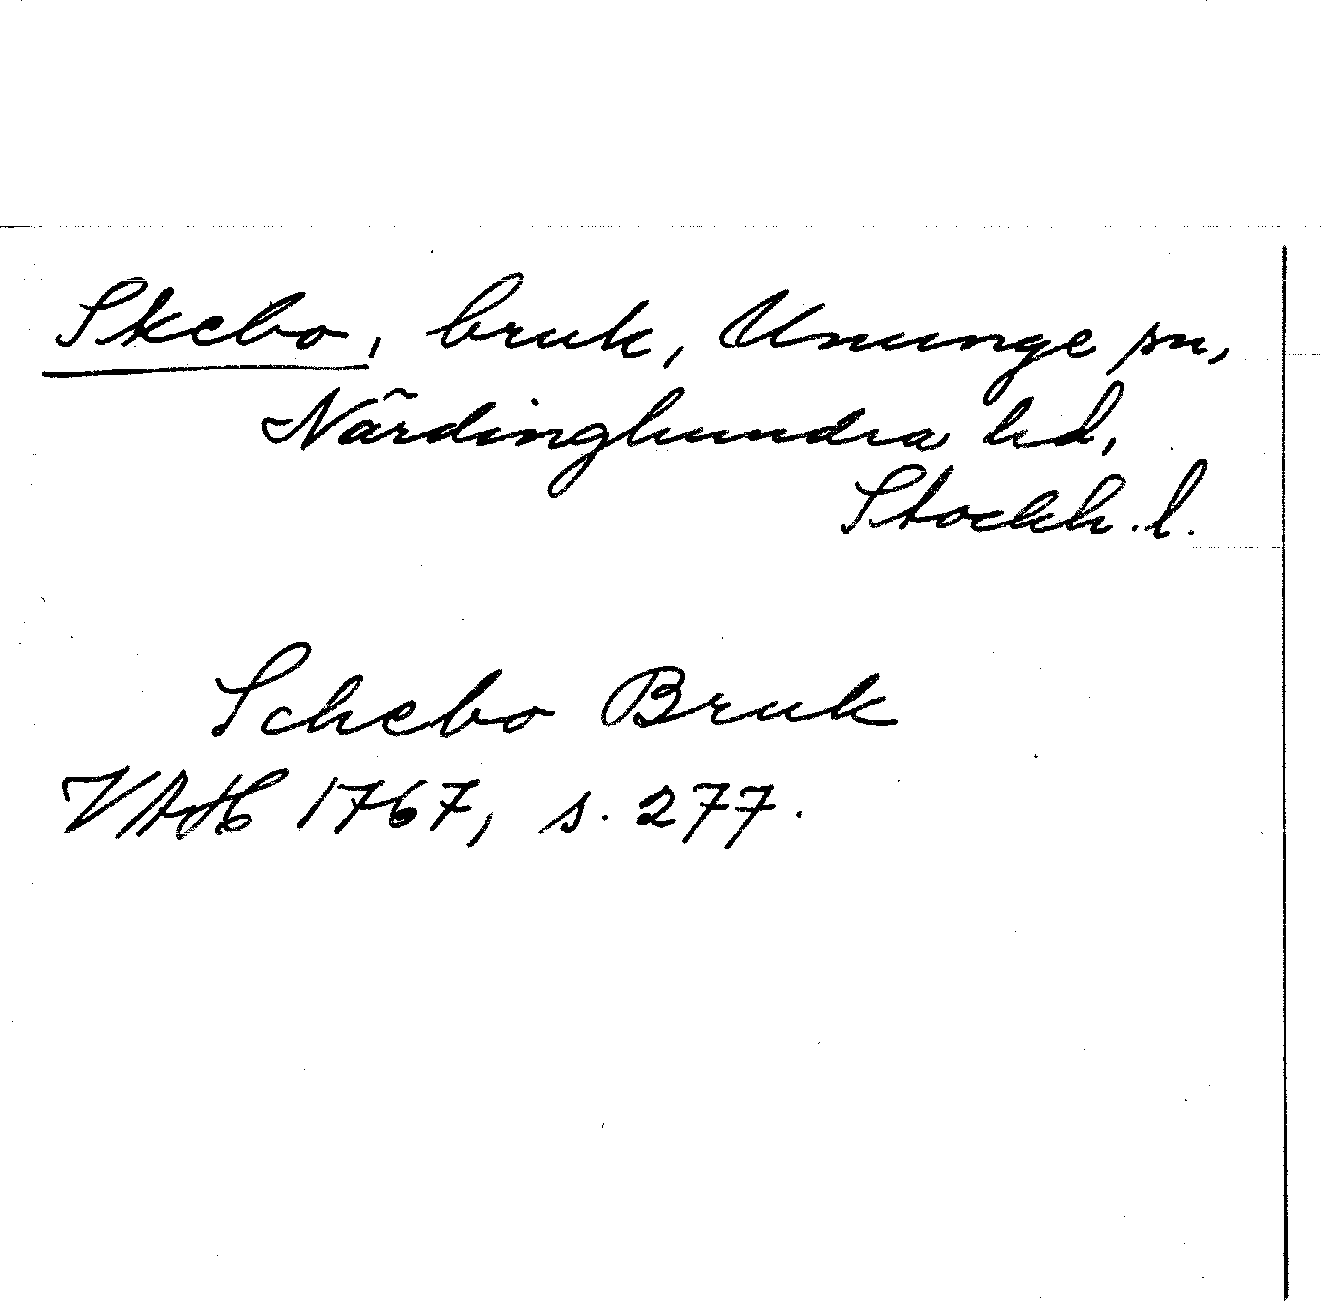 Skebo, bruk, Ununge sn,
Närdinghundra hd,
Stockh. l.
Schebo Bruk
VAH 1767, s. 277.